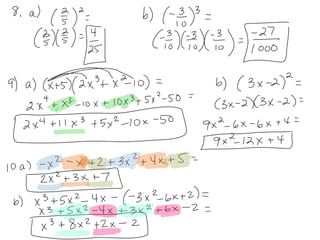 8. a) (2/5)² =
(2/5)(2/5) = 4/25
b) (-3/10)³ =
(-3/10)(-3/10)(-3/10) = -27/1000
9) a) (x+5)(2x³+x²-10) =
2x⁴+x³-10x+10x³+5x²-50=
2x⁴+11x³+5x²-10x-50
b) (3x-2)² =
(3x-2)(3x-2)=
9x²-6x-6x+4=
9x²-12x+4
10a) -x²-x+2+3x²+4x+5=
2x²+3x+7
b) x³+5x²-4x-(-3x²-6x+2)=
x³+5x²-4x+3x²+6x-2=
x³+8x²+2x-2